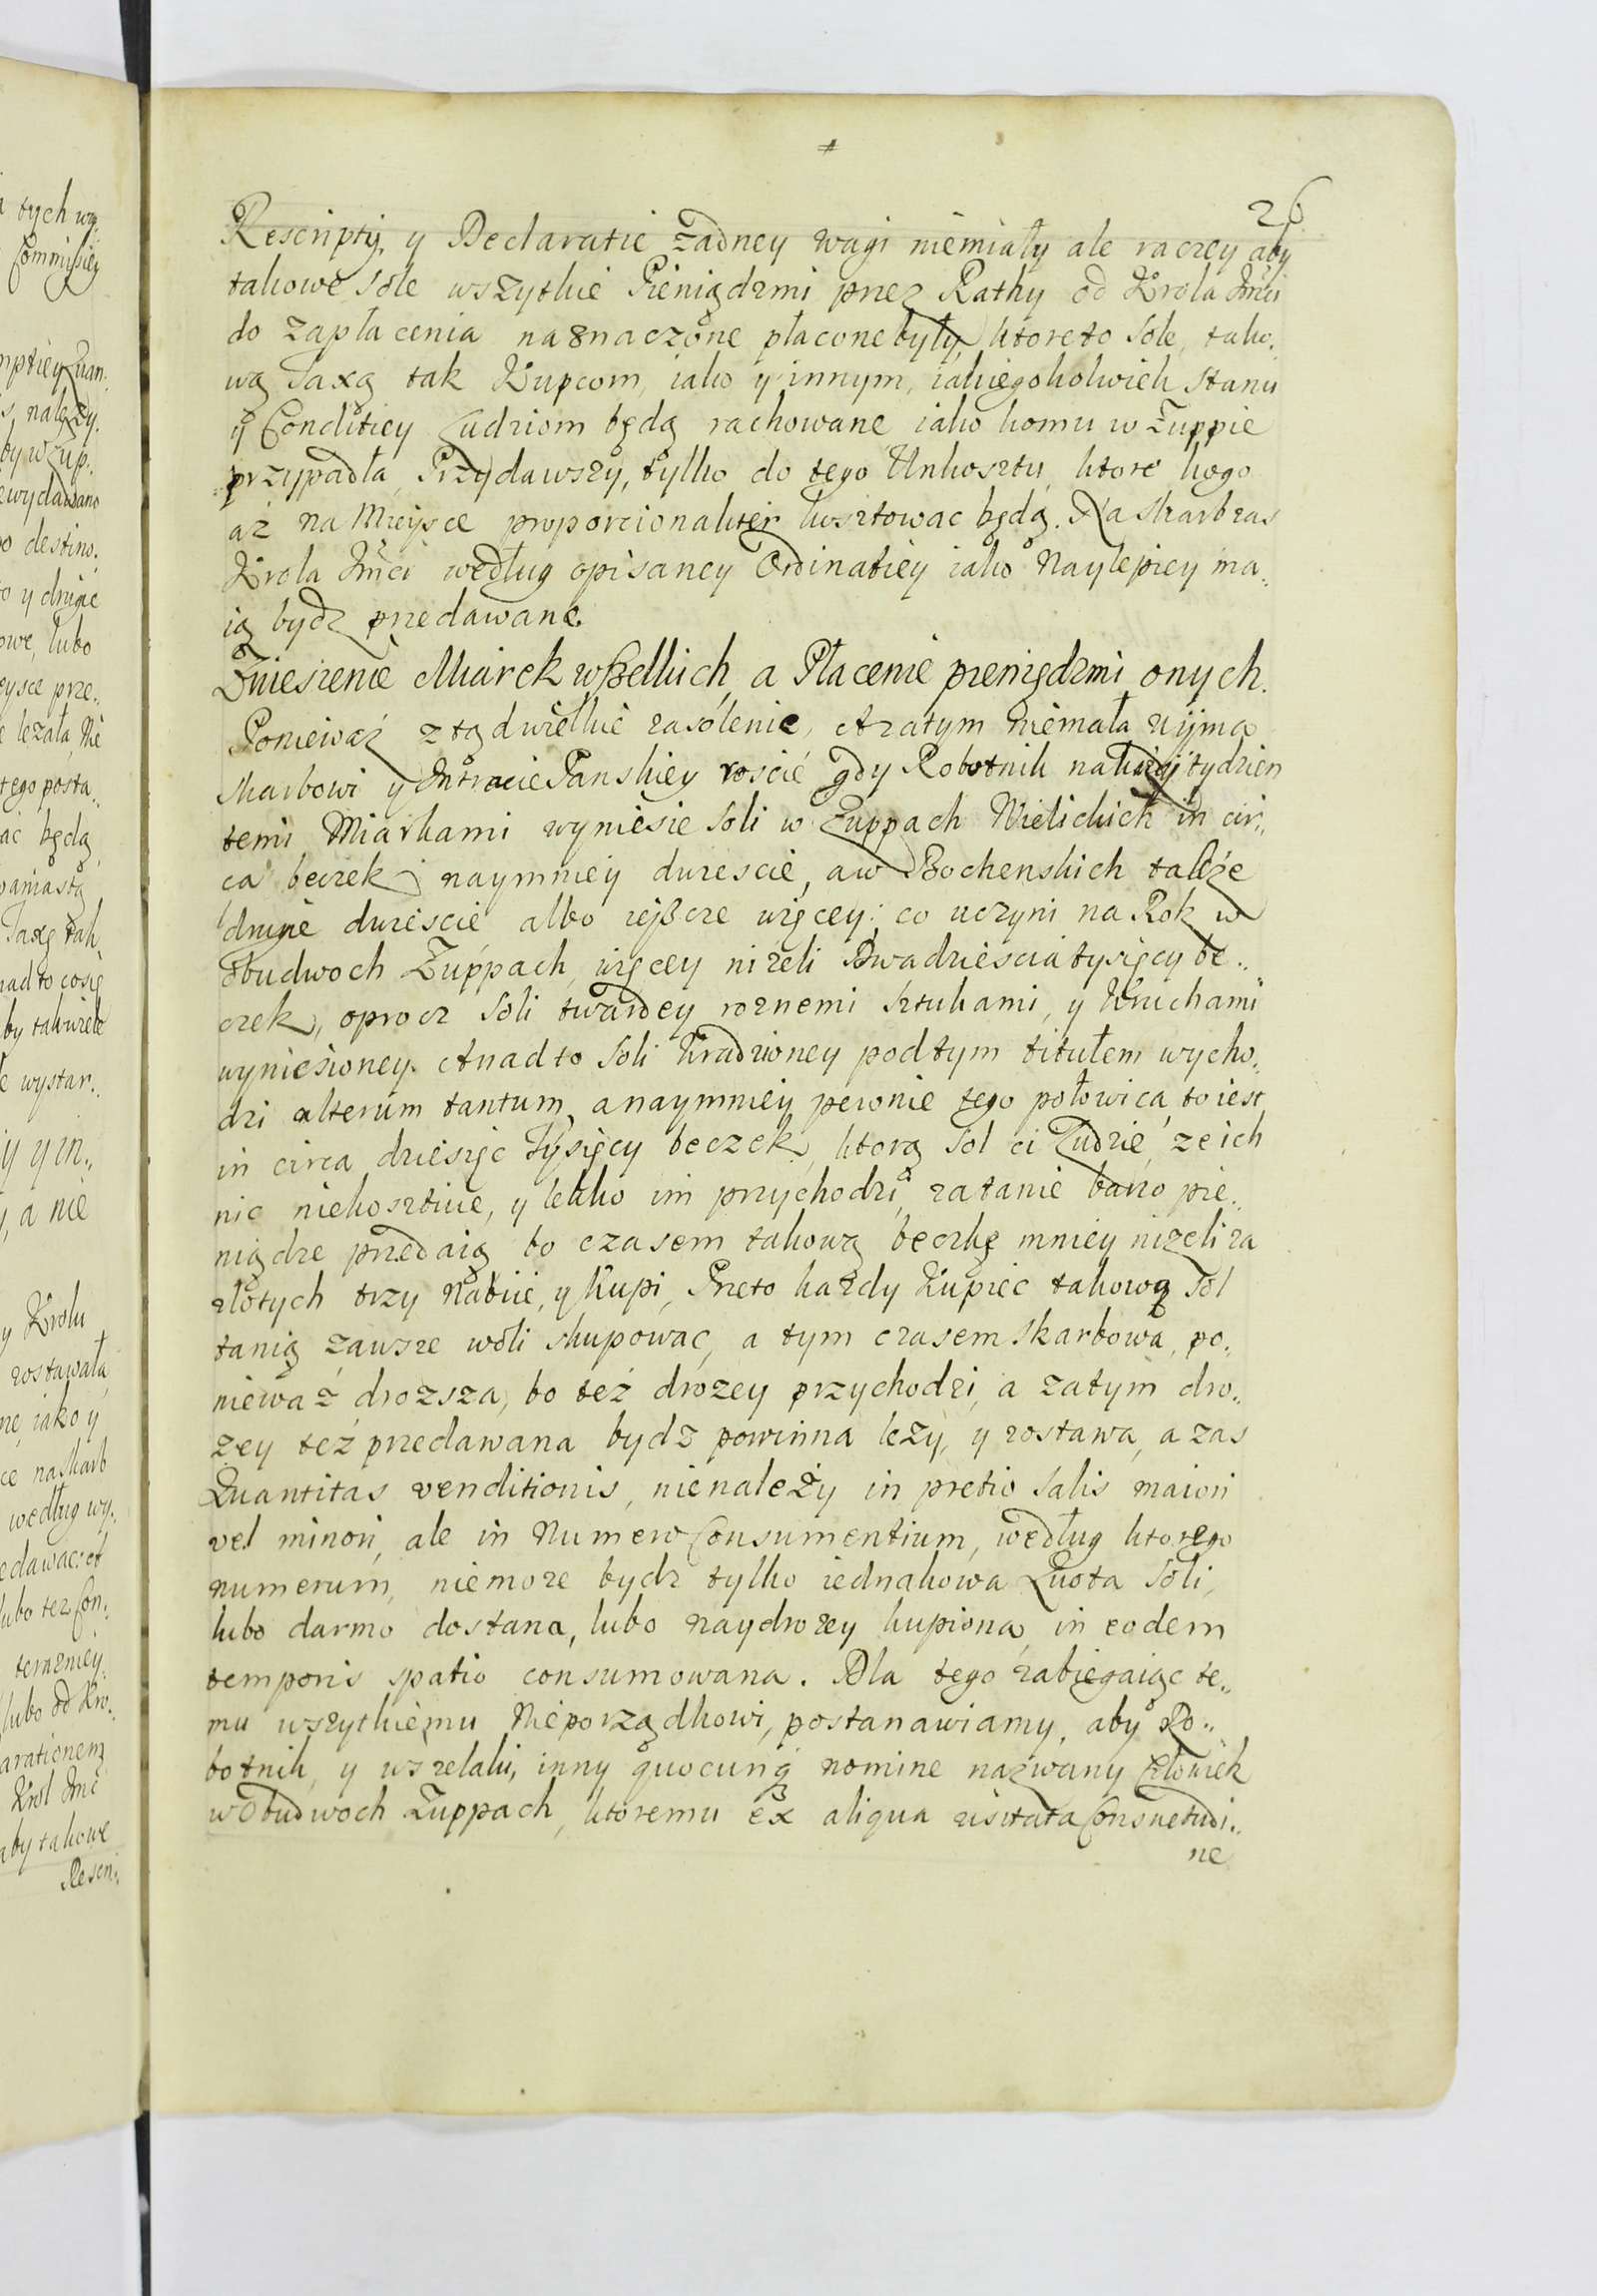 26
Rescripty, y Declaratie żadney wagi niemiały ale raczey aby
takowe Sole wszytkie Pieniądzmi przez Rathy od Krola Jmci
do zapłacenia naznaczone płacone były, ktoreto Sole, tako„
wą Taxą tak Kupcom, iako y innym, iakiegokolwiek Stanu
y Conditiey Ludziom będą rachowane iako komu w Żuppie
przypadła, Przydawszy, tylko do tego Unkosztu, ktore kogo
aż na Mieysce proporcionaliter kosztowac będą. Na Skarb zas
Krola Jmci według opisaney Ordinatiey iako Naylepiey ma„
ią bydz przedawane.
Zniesienie Miarek wszelkich, a Płacenie pieniędzmi onych.
Ponieważ ztąd wielkie zasolenie, A zatym niemała uyma
Skarbowi y Intracie Panskiey roscie gdy Robotnik na kazdy tydzien
temi Miarkami wyniesie Soli w Żuppach Wielickich in cir„
ca beczek naymniey dwiescie, a w Bochenskich także
drugie dwiescie albo ieszcze więcey; co uczyni na Rok w
Obudwoch Żuppach, więcey nizeli Dwadziescia tysięcy be„
czek, oprocz Soli twardey roznemi Sztukami, y Kruchami
wyniesioney. Anadto Soli Kradzioney podtym titułem wycho„
dzi alterum tantum, a naymniey pewnie tego połowica, to iest
in circa dziesięc Tysięcy beczek, ktorą Sol ci Ludzie, ze ich
nic niekosztuie, y lekko im przychodzi, za tanie barzo pie„
niądze przedaią bo czasem takową beczkę mniey nizeli za
złotych trzy Nabiie, y Kupi, Przeto kazdy Kupiec takową Sol
tanią zawsze woli skupowac, a tym czasem Skarbowa, po„
niewaz drozsza, bo też drozey przychodzi, a zatym dro„
żey też przedawana bydz powinna leży, y zostawa, a zas
Quantitas venditionis, nienależy in pretio Salis maiori
vel minori, ale in Numero Consumentium, według ktorego
numerum, niemoze bydz tylko iednakowa Quota Soli,
lubo darmo dostana, lubo naydrozey kupiona, in eodem
temporis spatio consumowana. Dla tego zabiegaiąc te„
mu wszytkiemu Nieporządkowi, postanawiamy, aby Ro„
botnik, y wszelaki, inny quocunq nomine nazwany Człowiek
w Obudwoch Żuppach, ktoremu ex aliqua usitata Consuetudi„
ne